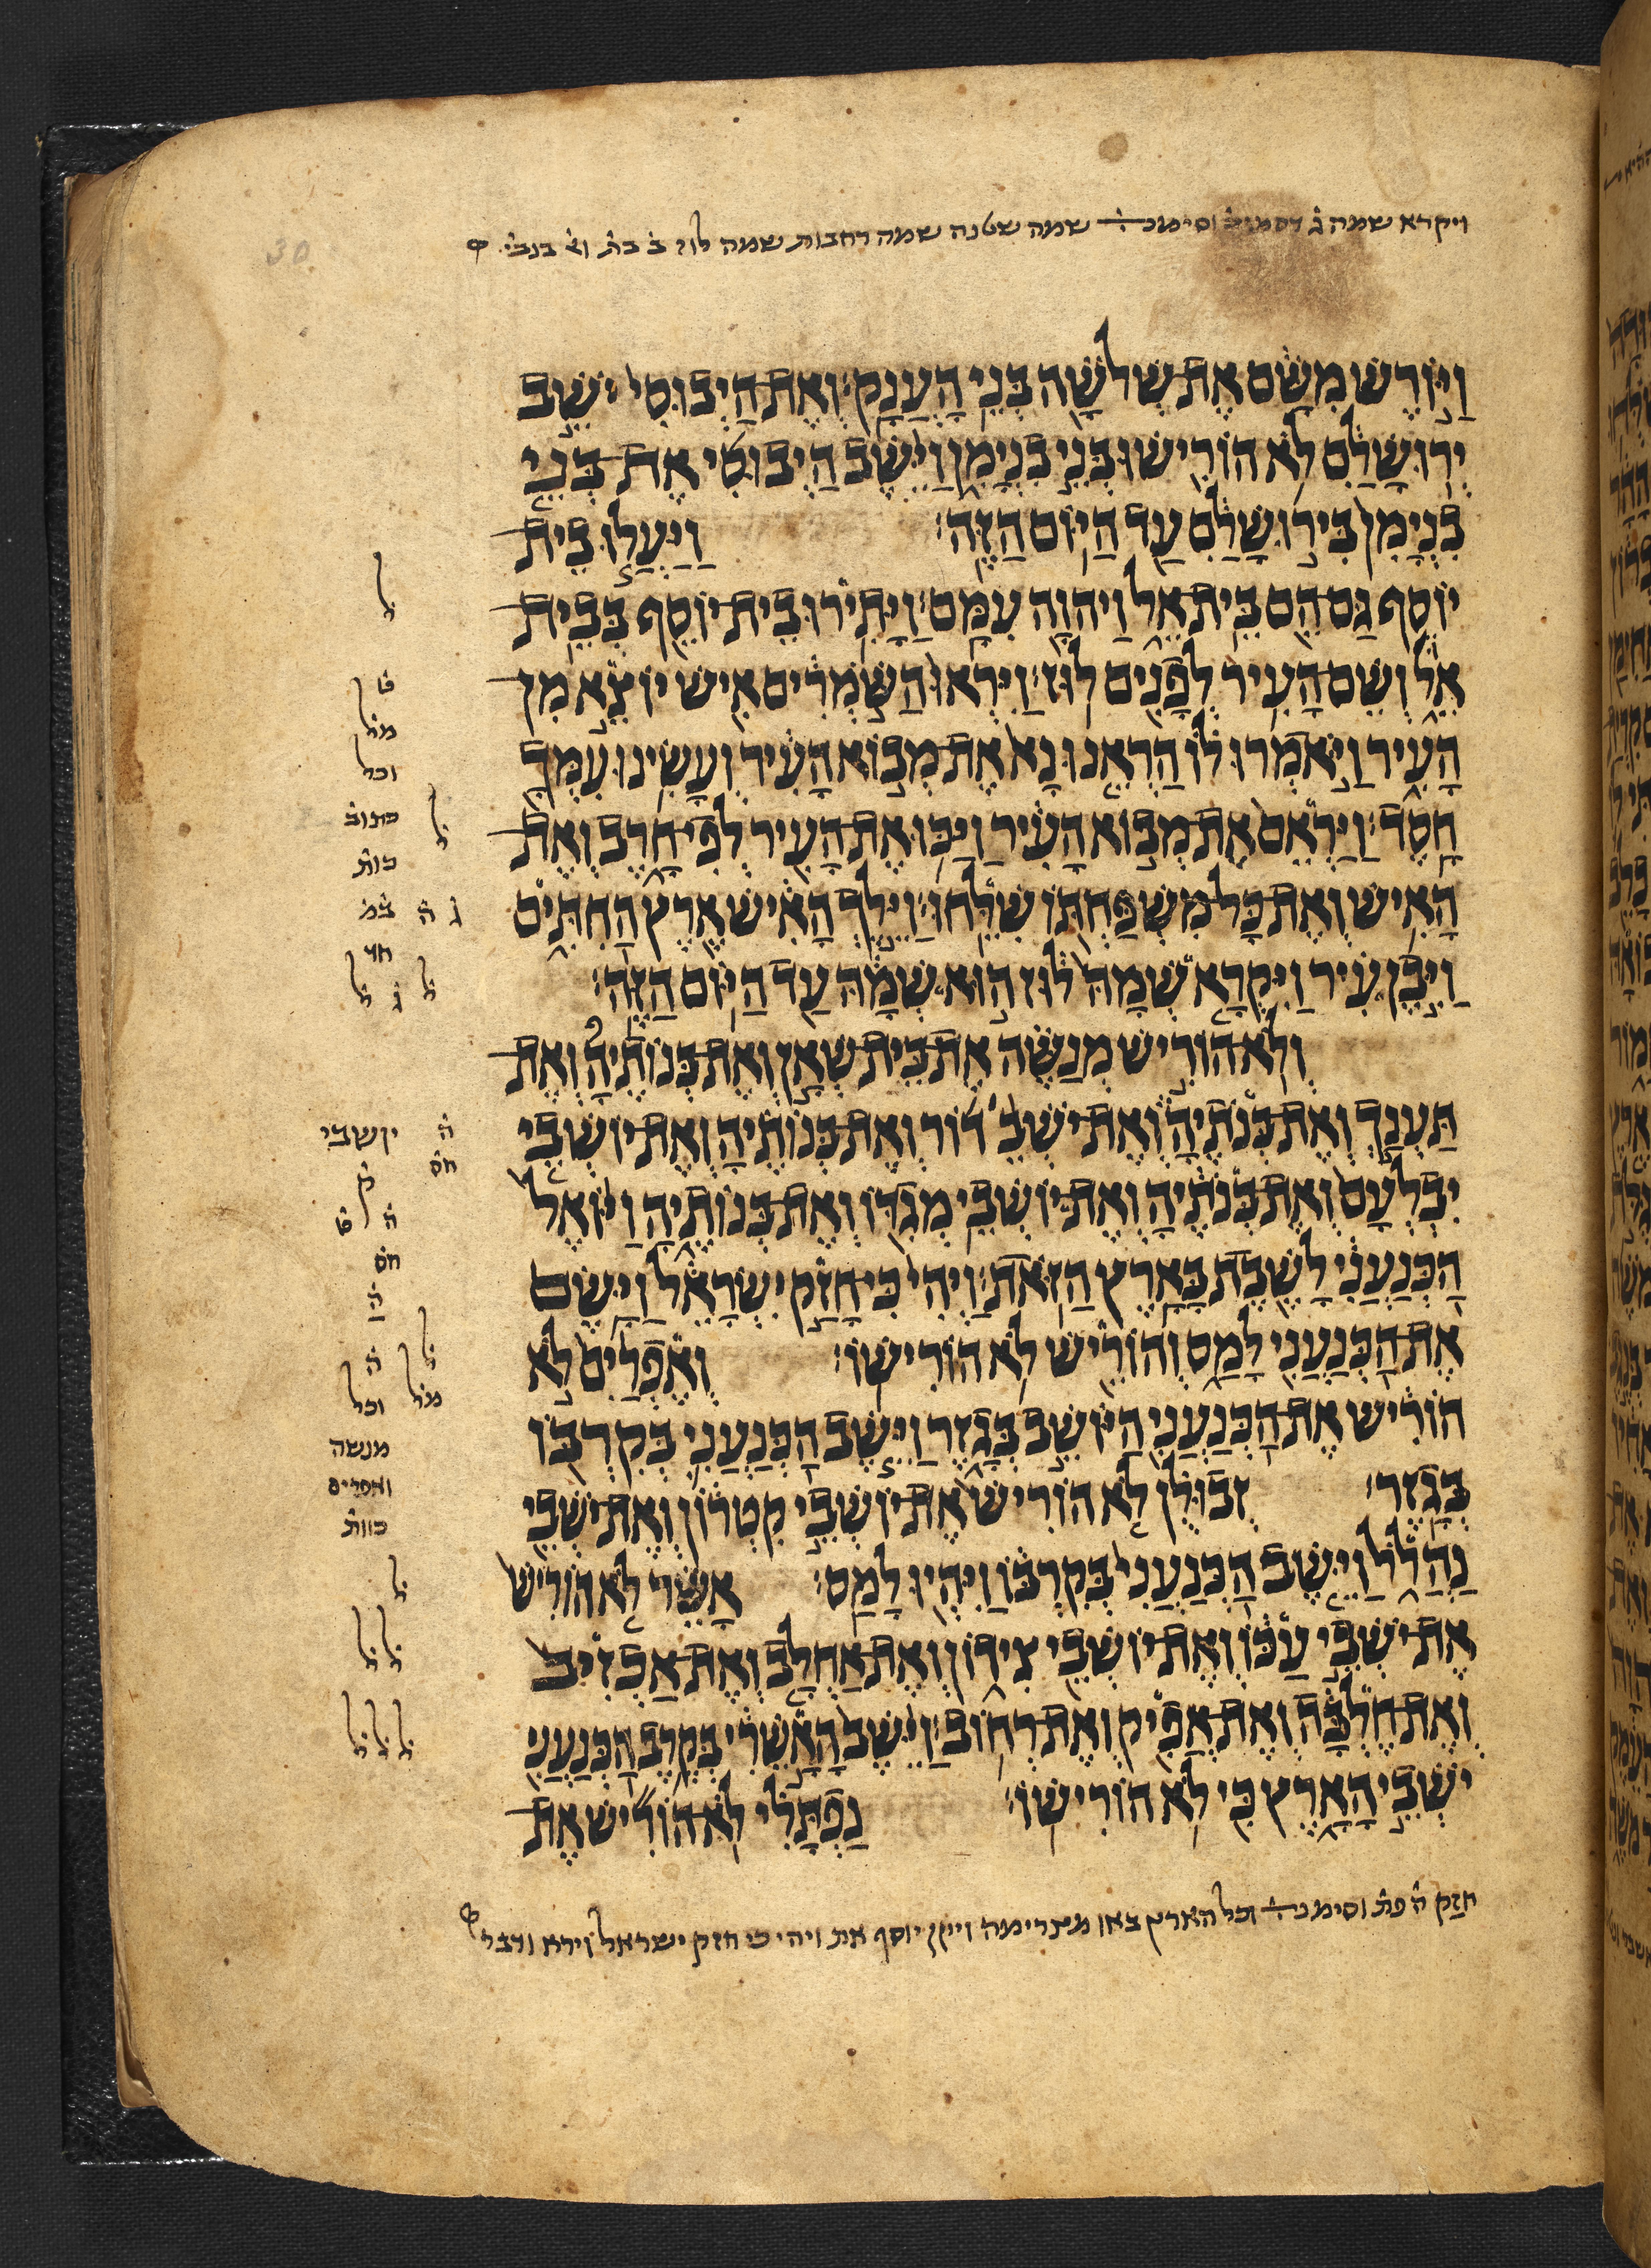 ויקרא שמה שמה שטנה שמה רחבות שמה לוז
וַיּוֹרֶשׁ מִשָּׁם אֶת שְׁלשָׁה בְּנֵי הָעֲנָק וְאֶת הַיְבוּסִי יֹשֵׁב
יְרוּשָׁלִַם לֹא הוֹרִישׁוּ בְּנֵי בִנְיָמִן וַיֵּשֶׁב הַיְבוּסִי אֶת בְּנֵי
בִנְיָמִן בִּירוּשָׁלִַם עַד הַיּוֹם הַזֶּה׃ וַיַּעֲלוּ בֵית
יוֹסֵף גַּם הֵם בֵּית אֵל וַיהוָה עִמָּם׃ וַיָּתִירוּ בֵית יוֹסֵף בְּבֵית
אֵל וְשֵׁם הָעִיר לְפָנִים לוּז׃ וַיִּרְאוּ הַשֹּׁמְרִים אִישׁ יוֹצֵא מִן
הָעִיר וַיֹּאמְרוּ לוֹ הַרְאֵנוּ נָא אֶת מְבוֹא הָעִיר וְעָשִׂינוּ עִמְּךָ
חָסֶד׃ וַיַּרְאֵם אֶת מְבוֹא הָעִיר וַיַּכּוּ אֶת הָעִיר לְפִי חָרֶב וְאֶת
הָאִישׁ וְאֶת כָּל מִשְׁפַּחְתּוֹ שִׁלֵּחוּ׃ וַיֵּלֶךְ הָאִישׁ אֶרֶץ הַחִתִּים
וַיִּבֶן עִיר וַיִּקְרָא שְׁמָהּ לוּז הוּא שְׁמָהּ עַד הַיּוֹם הַזֶּה׃
וְלֹא הוֹרִישׁ מְנַשֶּׁה אֶת בֵּית שְׁאָן וְאֶת בְּנוֹתֶיהָ וְאֶת
תַּעְנַךְ וְאֶת בְּנֹתֶיהָ וְאֶת יֹשְׁבֵ דוֹר וְאֶת בְּנוֹתֶיהָ וְאֶת יוֹשְׁבֵי
יִבְלְעָם וְאֶת בְּנֹתֶיהָ וְאֶת יוֹשְׁבֵי מְגִדּוֹ וְאֶת בְּנוֹתֶיהָ וַיּוֹאֶל
הַכְּנַעֲנִי לָשֶׁבֶת בָּאָרֶץ הַזֹּאת׃ וַיְהִי כִּי חָזַק יִשְׂרָאֵל וַיָּשֶׂם
אֶת הַכְּנַעֲנִי לָמַס וְהוֹרֵישׁ לֹא הוֹרִישׁוֹ׃ וְאֶפְרַיִם לֹא
הוֹרִישׁ אֶת הַכְּנַעֲנִי הַיּוֹשֵׁב בְּגָזֶר וַיֵּשֶׁב הַכְּנַעֲנִי בְּקִרְבּוֹ
בְּגָזֶר׃ זְבוּלֻן לֹא הוֹרִישׁ אֶת יוֹשְׁבֵי קִטְרוֹן וְאֶת יֹשְׁבֵי
נַהֲלֹל וַיֵּשֶׁב הַכְּנַעֲנִי בְּקִרְבּוֹ וַיִּהְיוּ לָמַס׃ אָשֵׁר לֹא הוֹרִישׁ
אֶת יֹשְׁבֵי עַכּוֹ וְאֶת יוֹשְׁבֵי צִידוֹן וְאֶת אַחְלָב וְאֶת אַכְזִיב
וְאֶת חֶלְבָּה וְאֶת אֲפִיק וְאֶת רְחֹב׃ וַיֵּשֶׁב הָאָשֵׁרִי בְּקֶרֶב הַכְּנַעֲנִי
יֹשְׁבֵי הָאָרֶץ כִּי לֹא הוֹרִישׁוֹ׃ נַפְתָּלִי לֹא הוֹרִישׁ אֶת
חזק ה פת וסימנה וכל הארץ באו מצרימה ויזק יוסף את ויהי כי חזק ישראל וירא ודבר
ל
מל
וכל
כתוב
ל
כות
יושבי
חס
חס
ל
מל
וכל
מנשה
ואפרים
כוות
ל
ל ל
ל ל ל
30